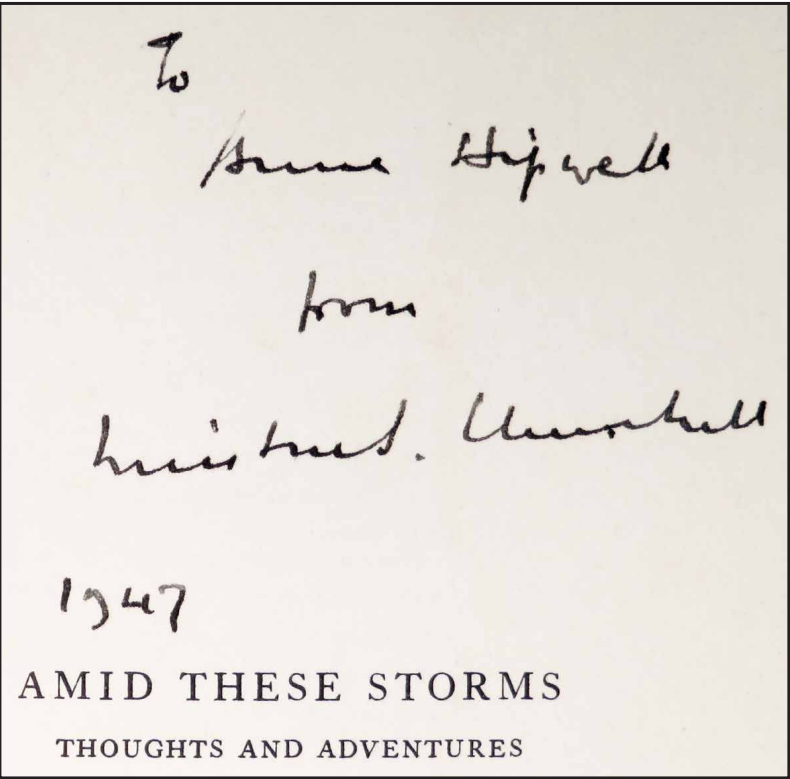 To
Anne Hipwell
from
Winston S. Churchill
1947
AMID THESE STORMS
THOUGHTS AND ADVENTURES